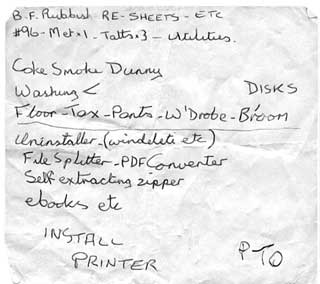 B.F. Rubbish RE-SHEETS-ETC
#96-Met×1-Tatts×3-Utilities.
Coke Smoke Dunny
Washing <
DISKS
Floor-Tax-Pants-W'Drobe-B'room
Uninstaller-(windelete etc)
File Splitter-PDF Converter
Self extracting zipper
ebooks etc
INSTALL
PRINTER
PTO